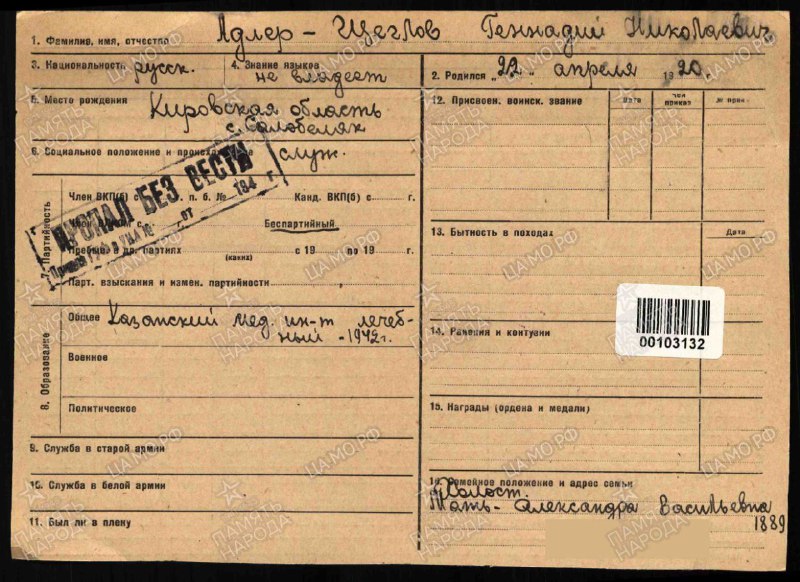 1. Фамилия, имя, отчество Адлер - Щеглов Геннадий Николаевич
3. Национальность русск.
4. Знание языков не владеет
2. Родился „22“ апреля 1920 г.
5. Место рождения Кировская область
с. Салобеляк
6. Социальное положение и служ.
ПРОПАЛ БЕЗ ВЕСТИ
от 194 г.
7. Партийность
Член ВКП(б) с п. б. № Канд. ВКП(б) с г.
Беспартийный
Пребыв. в др. партиях с 19 по 19 г.
(каких)
Парт. взыскания и измен. партийности
8. Образование
Общее Казанский мед. ин-т лечеб-
ный - 1942 г.
Военное
Политическое
9. Служба в старой армии
10. Служба в белой армии
11. Был ли в плену
12. Присвоен. воинск. звание
Дата
чей приказ
№ прик.
13. Бытность в походах
Дата
14. Ранения и контузии
00103132
15. Награды (ордена и медали)
16. Семейное положение и адрес семьи
Холост.
Мать - Александра Васильевна
1889
ПАМЯТЬ НАРОДА
ЦАМО.РФ